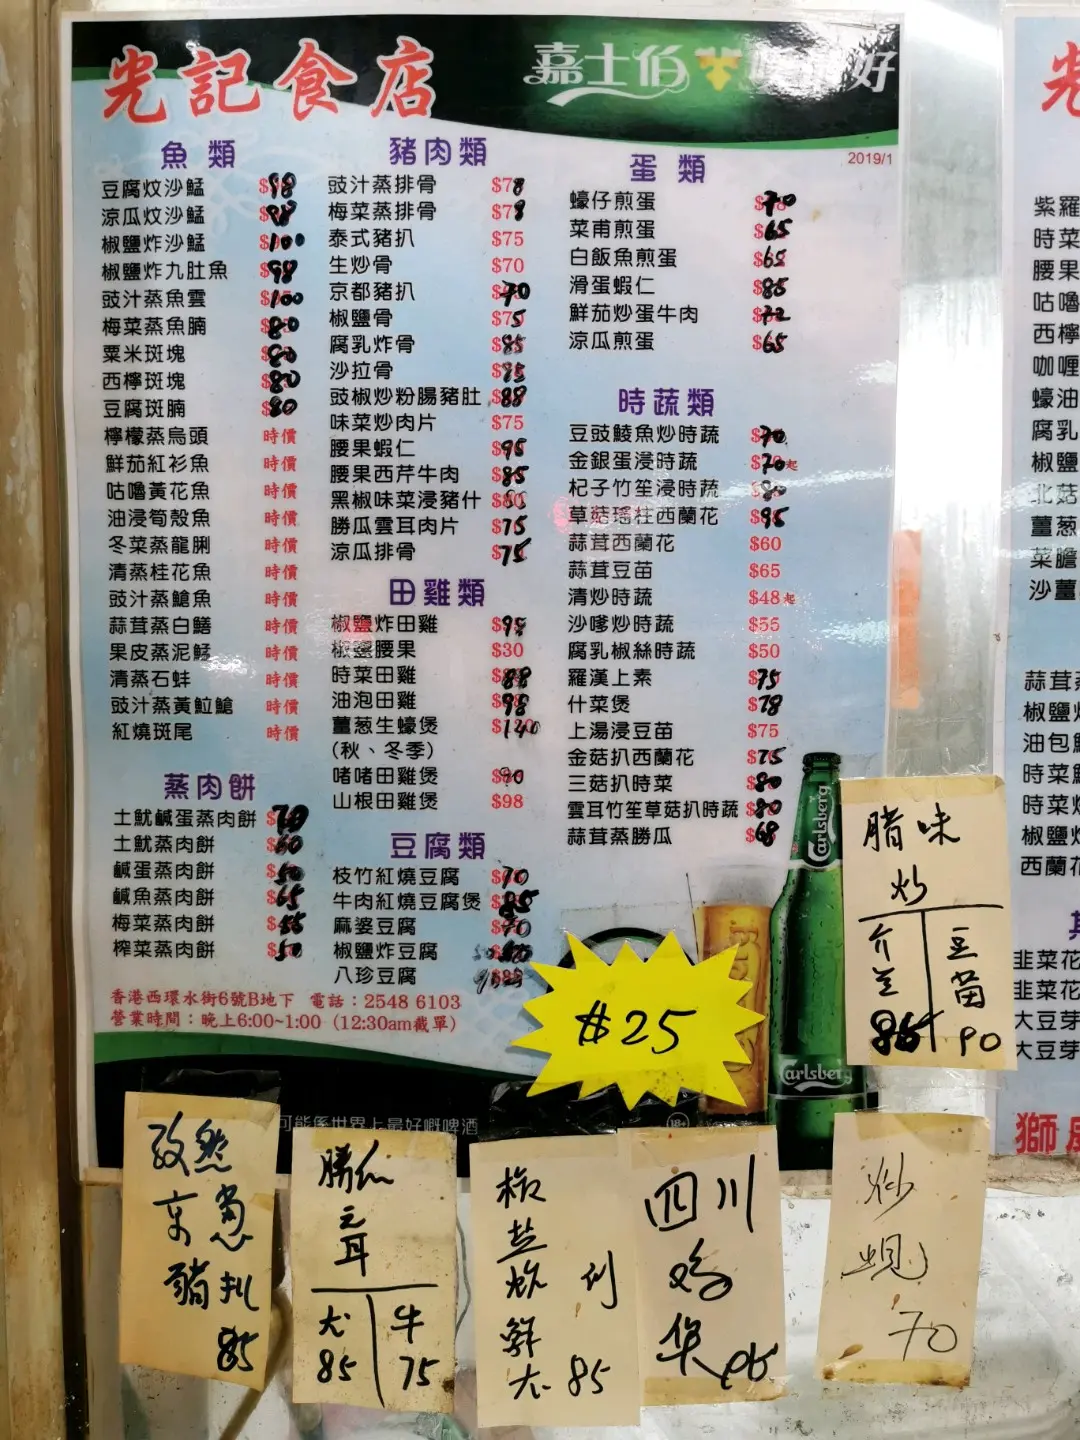 光記食店
嘉士伯
好
2019/1
魚類
豆腐炆沙鯭 $98
涼瓜炆沙鯭 $98
椒鹽炸沙鯭 $100
椒鹽炸九肚魚 $98
豉汁蒸魚雲 $100
梅菜蒸魚腩 $80
粟米斑塊 $80
西檸斑塊 $80
豆腐斑腩 $80
檸檬蒸烏頭 時價
鮮茄紅衫魚 時價
咕嚕黃花魚 時價
油浸筍殼魚 時價
冬菜蒸龍脷 時價
清蒸桂花魚 時價
豉汁蒸鮐魚 時價
蒜茸蒸白鱔 時價
果皮蒸泥鯭 時價
清蒸石蚌 時價
豉汁蒸黃𩶘鮐 時價
紅燒斑尾 時價
蒸肉餅
土魷鹹蛋蒸肉餅 $70
土魷蒸肉餅 $60
鹹蛋蒸肉餅 $50
鹹魚蒸肉餅 $65
梅菜蒸肉餅
榨菜蒸肉餅 $50
豬肉類
豉汁蒸排骨 $78
梅菜蒸排骨 $78
泰式豬扒 $75
生炒骨 $70
京都豬扒 70
椒鹽骨 $75
腐乳炸骨 $85
沙拉骨
豉椒炒粉腸豬肚 $88
味菜炒肉片 $75
腰果蝦仁 $95
腰果西芹牛肉 $85
黑椒味菜浸豬什 $80
勝瓜雲耳肉片 $75
涼瓜排骨 $75
田雞類
椒鹽炸田雞 $98
椒鹽腰果 $30
時菜田雞 $88
油泡田雞 $98
薑葱生蠔煲 $140
(秋、冬季)
啫啫田雞煲 $90
山根田雞煲 $98
豆腐類
枝竹紅燒豆腐 $70
牛肉紅燒豆腐煲 $85
麻婆豆腐 $70
椒鹽炸豆腐
八珍豆腐
蛋類
蠔仔煎蛋 $70
菜甫煎蛋 $65
白飯魚煎蛋 $65
滑蛋蝦仁 $85
鮮茄炒蛋牛肉 $72
涼瓜煎蛋 $65
時蔬類
豆豉鯪魚炒時蔬 $70
金銀蛋浸時蔬 $70起
杞子竹笙浸時蔬 $80
草菇瑤柱西蘭花 $95
蒜茸西蘭花 $60
蒜茸豆苗 $65
清炒時蔬 $48起
沙嗲炒時蔬 $55
腐乳椒絲時蔬 $50
羅漢上素 $75
什菜煲 $78
上湯浸豆苗 $75
金菇扒西蘭花 $75
三菇扒時菜 $80
雲耳竹笙草菇扒時蔬 $80
蒜茸蒸勝瓜 $68
香港西環水街6號B地下 電話：2548 6103
營業時間：晚上6:00~1:00 (12:30am截單)
可能係世界上最好嘅啤酒
18+
Carlsberg
Carlsberg
$25
腊味
炒
介兰 豆苗
85 90
孜然
京葱
豬扒
85
勝瓜
云耳
尤 牛
85 75
椒
盐
炊
鮮
尤 85
四川
鸡
炒
蜆
70
光
紫羅
時菜
腰果
咕嚕
西檸
咖喱
蠔油
腐乳
椒鹽
北菇
薑葱
菜膽
沙薑
蒜茸蒸
椒鹽
油包
時菜
時菜
椒鹽
西蘭花
韭菜花
韭菜花
大豆芽
大豆芽
獅